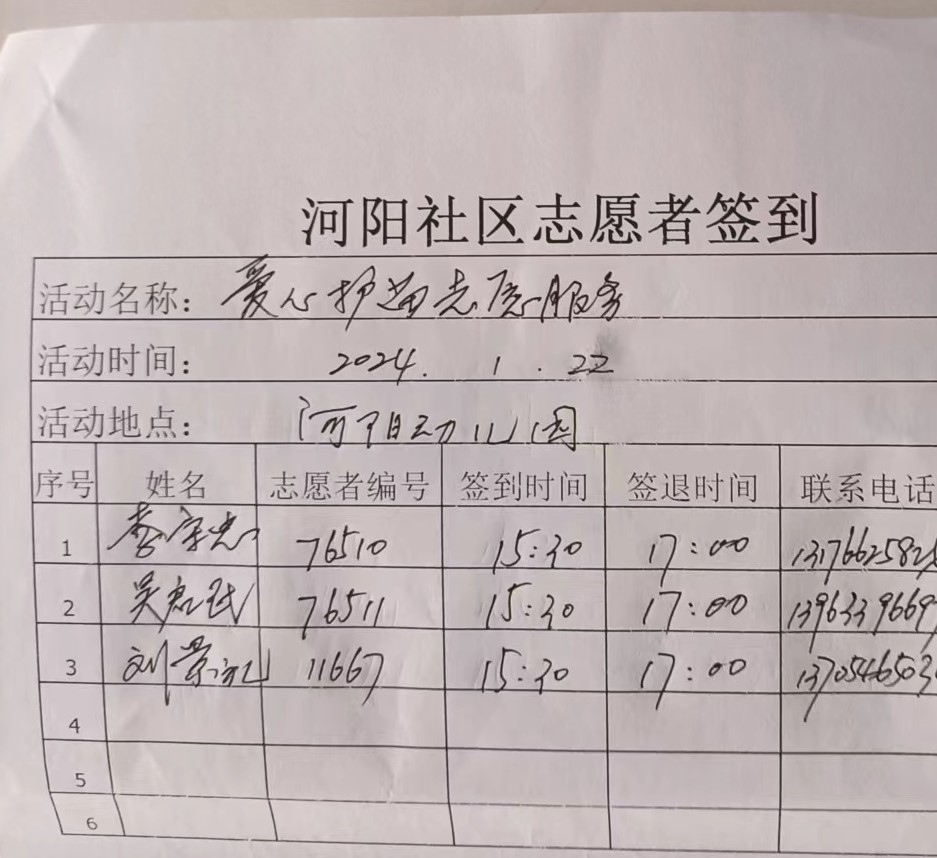 河阳社区志愿者签到
活动名称: 爱心护苗志愿服务
活动时间: 2024. 1. 22
活动地点: 河阳
序号 姓名 志愿者编号 签到时间 签退时间 联系电话
1 76510 15:30 17:00 1317662582
2 吴 76511 15:30 17:00 1396339669
3 刘景 11667 15:30 17:00 1370546503
4
5
6